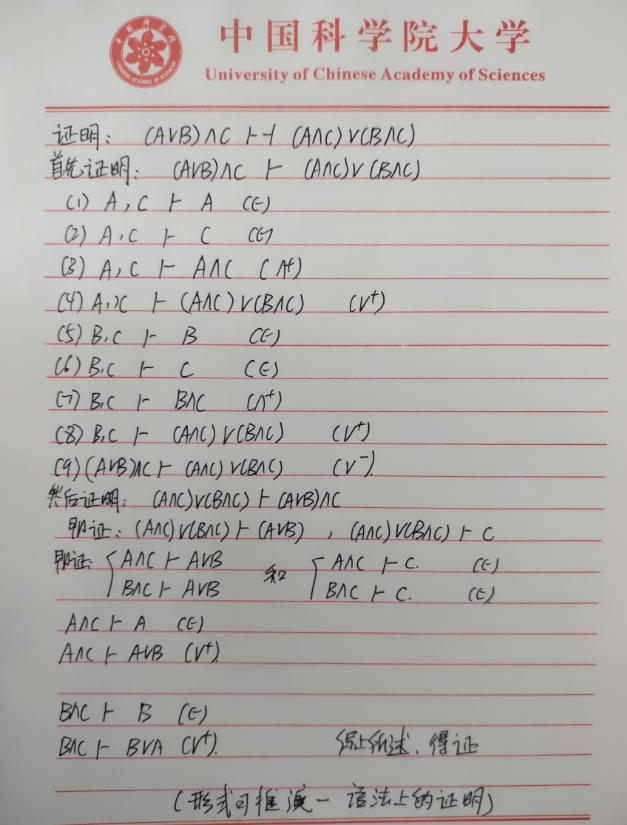 中国科学院大学
University of Chinese Academy of Sciences
证明: (A∨B)∧C ⊢⊣ (A∧C)∨(B∧C)
首先证明: (A∨B)∧C ⊢ (A∧C)∨(B∧C)
(1) A,C ⊢ A (∈)
(2) A,C ⊢ C (∈)
(3) A,C ⊢ A∧C (∧+)
(4) A,C ⊢ (A∧C)∨(B∧C) (∨+)
(5) B,C ⊢ B (∈)
(6) B,C ⊢ C (∈)
(7) B,C ⊢ B∧C (∧+)
(8) B,C ⊢ (A∧C)∨(B∧C) (∨+)
(9) (A∨B)∧C ⊢ (A∧C)∨(B∧C) (∨-).
然后证明: (A∧C)∨(B∧C) ⊢ (A∨B)∧C
即证: (A∧C)∨(B∧C) ⊢ (A∨B) , (A∧C)∨(B∧C) ⊢ C
即证: { A∧C ⊢ A∨B 和 { A∧C ⊢ C. (∈)
B∧C ⊢ A∨B B∧C ⊢ C. (∈)
A∧C ⊢ A (∈)
A∧C ⊢ A∨B (∨+).
B∧C ⊢ B (∈)
B∧C ⊢ B∨A (∨+). 综上所述、得证
(形式可推演一 语法上的证明)